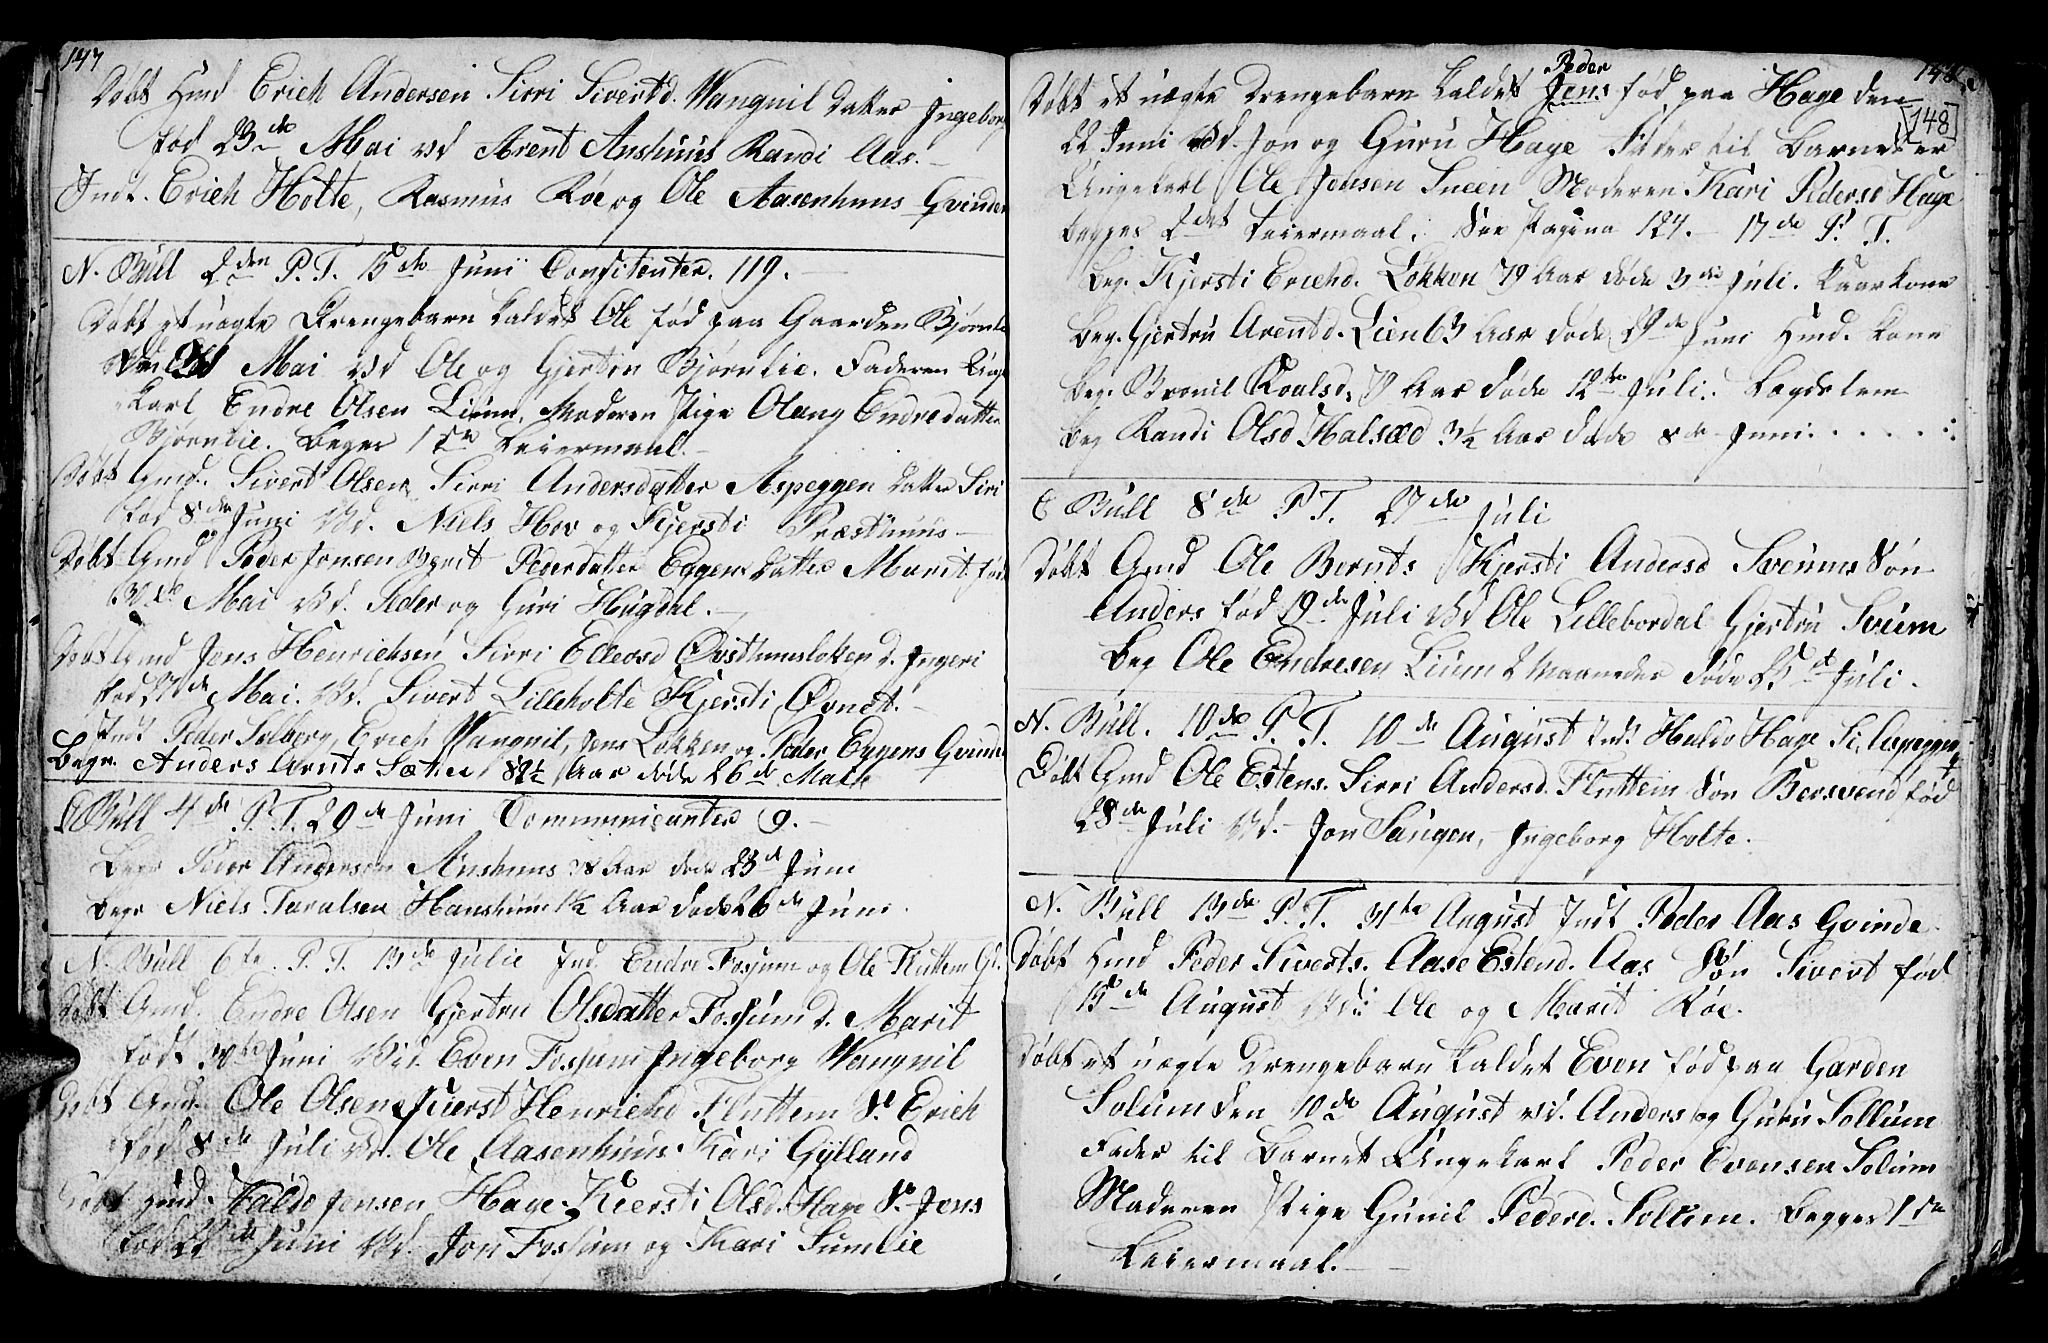 147
Døbt Hmd Erich Andersen Sirri Sivertd. Wangnil datter Ingeborg
fød 23de Mai vd Arent Aushuus Randi Aas.
Indt. Erich Holte, Rasmus Røe og Ole Aasenhuus Qvinder
N. Bull 2den P. T. 15de Junii Confitenter. 119.
Døbt et uægte Drengebarn kaldet Ole fød paa Gaarden Bjørnlie
Mai vd Ole og Gjertru Bjørnlie. Faderen Unge
karl Endre Olsen Lium, Moderen Pige Olaug Endredatter
Bjørnlie. Begges 1ste Leiermaal.
Døbt Gmd. Sivert Olsen, Sirri Andersdatter Aspeggen datter Siri
fød 8de Juni Vd. Niels Hov og Kjersti Præsthuus
Døbt Gmd Peder Jonsen Beret Pederdatter Eggen datter Marit fød
30te Mai Vd. Peder og Guri Hugdal.
Døbt Gmd Jens Henrichsen Sirri Ellevsd Østhusløkken d. Ingeri
fød 27de Mai. Vd. Sivert Lilleholte Kjersti Qvndt.
Indt Peder Solberg, Erich Wangnil, Jens Løkken og Peder Eggens Qvinder
Begr. Anders Arnts Sæther 82½ Aar døde 26de Mai
E Bull 4de P. T. 29de Juni Communicanter 9.
Begr Peer Andersen Aushuus Aar døde 23d Juni
Begr Niels Taralsen Hanshuus 1½ Aar døde 26de Juni.
N. Bull 6te P. T. 13de Julie Ind Endre Fossum og Ole Fluttem Q.
Døbt Gmd. Endre Olsen Gjertru Olsdatter Fossum d. Marit
født 30te Juni Vd. Even Fossum Ingeborg Wangnil
Døbt Gmd. Ole Olsen Sivert Henrichd Fluttem S. Erich
fød 8de Juli Vd. Ole Aasenhuus Kari Gylland
Døbt Hmd. Haldo Jensen Hage Kiersti Olsd. Hage S. Jens
fød 22de Juni Vd. Jon Fossum og Kari Sumlie
148
148
Peder
Døbt et uægte Drengebarn kaldet Jens fød paa Hage den
22 Juni Vd. Jon og Guru Hage Fader til Barnet er
Ungekarl Ole Jonsen Sneen Moderen Kari Pedersd Hage
begges 2det Leiermaal. See Pagina 124. 17de P. T.
Beg. Kjersti Erichd. Løkken 79 Aar døde 3die Juli. Kaarkone
Beg. Gjertru Arentd. Lien 63 Aar døde 29de Juni Hmd. kone
Beg. Bronil Roalsd. 79 Aar døde 12te Juli. Lægdslem
Beg Randi Olsd Halsæd 3½ Aar døde 8de Juni.
E Bull 8de P T. 27de Juli
Døbt Gmd Ole Bernts Kjersti Andersd Sveums Søn
Anders fød 19de Juli Vd Ole Lillebordal Gjertru Svium
Beg Ole Endresen Lium 2 Maaneder døde 25d Juli.
N. Bull. 10de P. T. 10de August Ind. Haldo Hage Si. Aspeggen
Døbt Gmd Ole Estens. Sirri Andersd. Fluttem Søn Bersvend fød
28de Juli Vd. Jon Haugen, Ingeborg Holte.
N. Bull 13de P. T. 31te August Indt Peder Aas Qvinde.
Døbt Hmd Peder Siverts. Aase Estend. Aas Søn Sivert fød
15de August Vd. Ole og Marit Røe.
Døbt et uægte Drengebarn kaldet Even fød paa Garden
Solum den 10de August vd. Anders og Guru Sollum
Fader til Barnet Ungekarl Peder Evensen Solum
Moderen Pige Gunil Pederd. Sollum. Begges 1ste
Leiermaal.